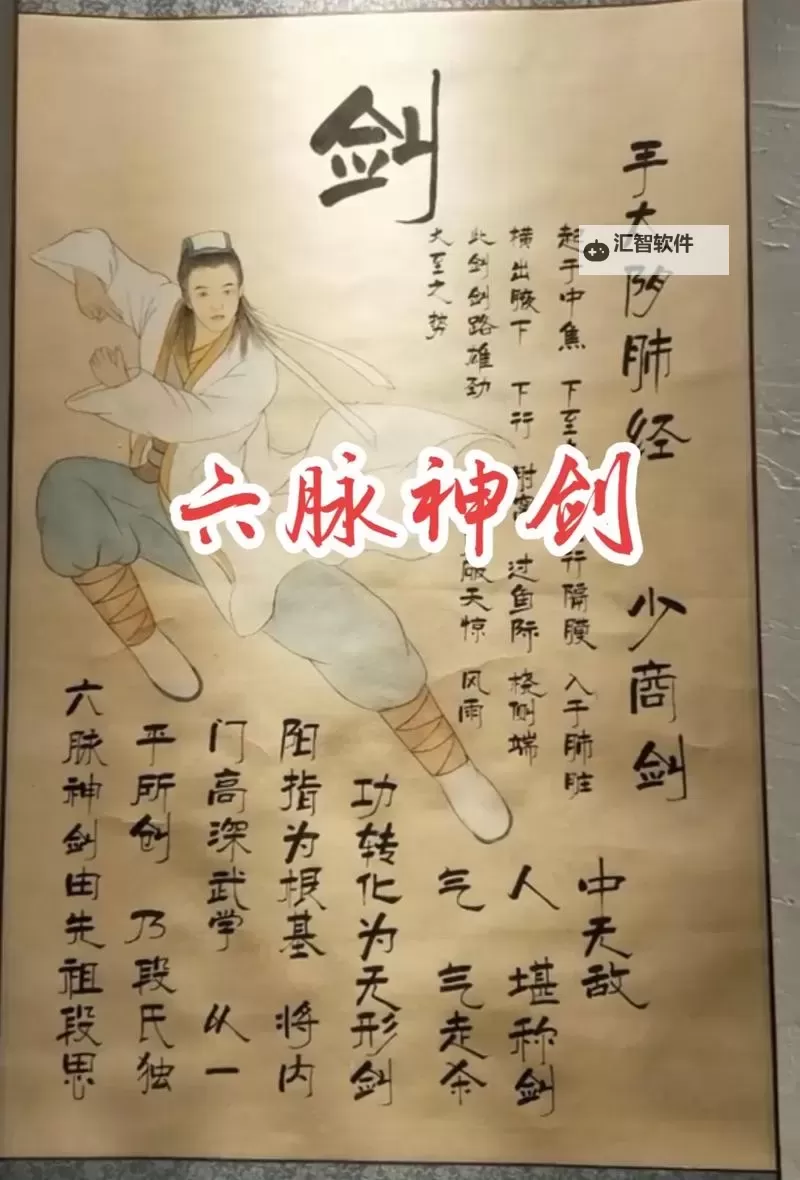 剑
手太阴肺经 少商剑
起于中焦 下至 行隔膜 入于肺脏
横出腋下 下行 肘窝 过鱼际 桡侧端
此剑剑路雄劲 破天惊 风雨
大至之势
汇智软件
六脉神剑
六脉神剑由先祖段思
平所创 乃段氏独
门高深武学 从一
阳指为根基 将内
功转化为无形剑
气 气走杀
人 堪称剑
中无敌